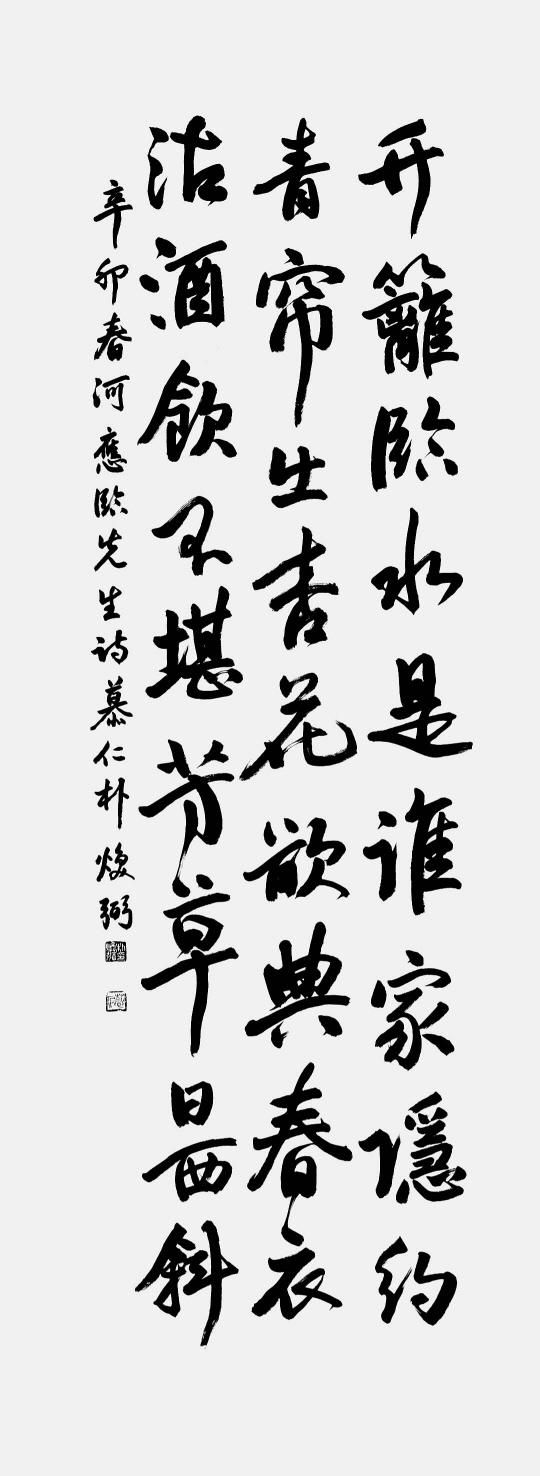 开籬臨水是誰家隱約
青帘生杏花欲典春衣
沽酒飲不堪芳草日西斜
辛卯春河應臨先生詩慕仁朴煥弼